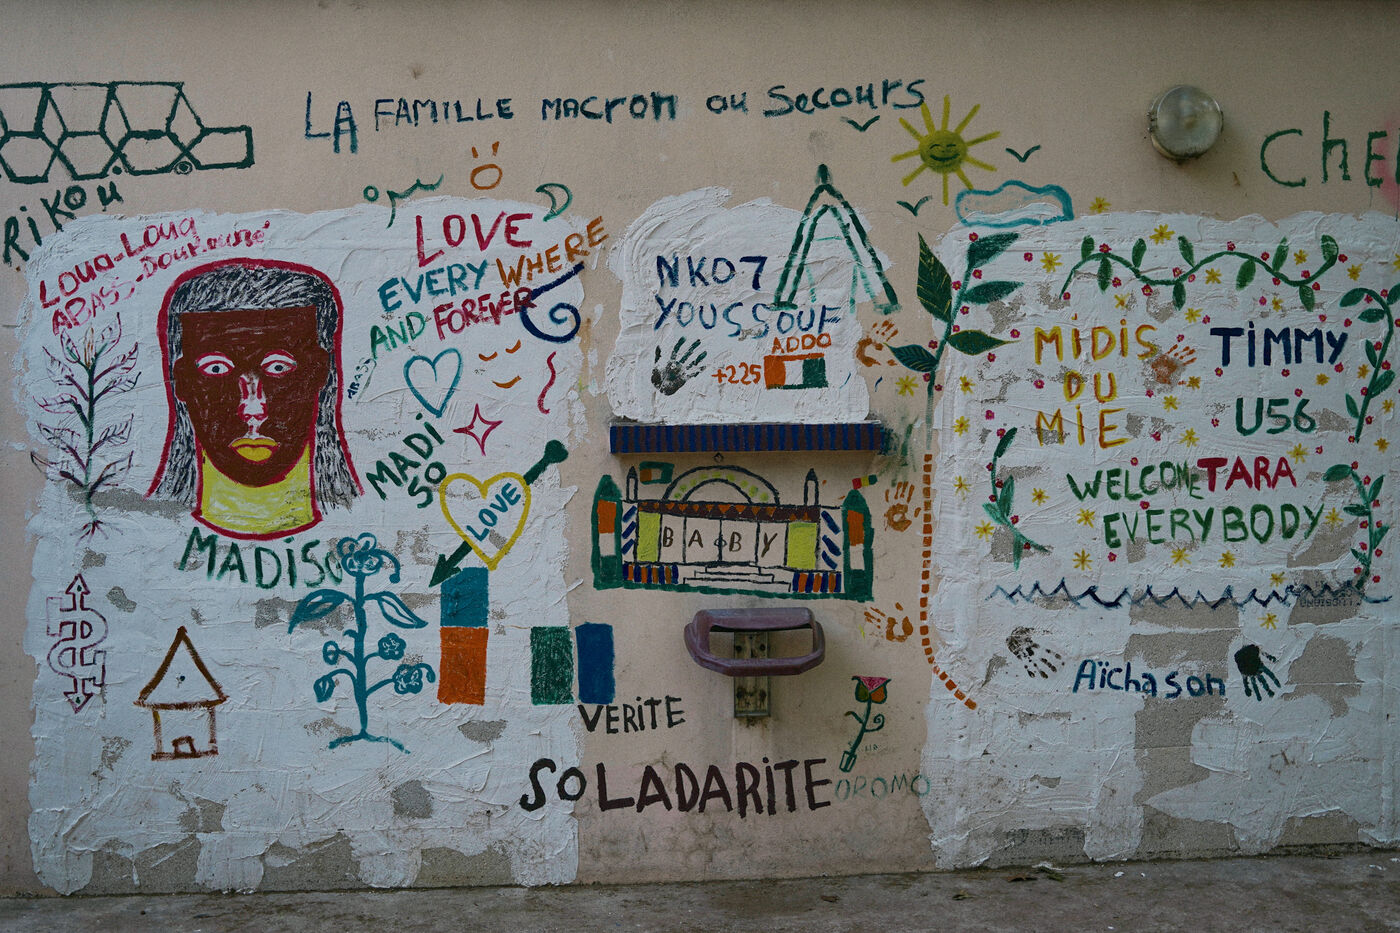 LA FAMILLE macron au Secours
CHE
RiKOU
LOUA-LOUA
ABASS-DOUKOURé
LOVE
EVERY WHERE
AND FOREVER
MADI
SO
LOVE
MADISO
NKO7
YOUSSOUF
ADDO
+225
BABY
VERITE
SOLADARITE
OROMO
MiDiS
DU
MiE
TiMMY
U56
WELCOME TARA
EVERYBODY
Aïchason